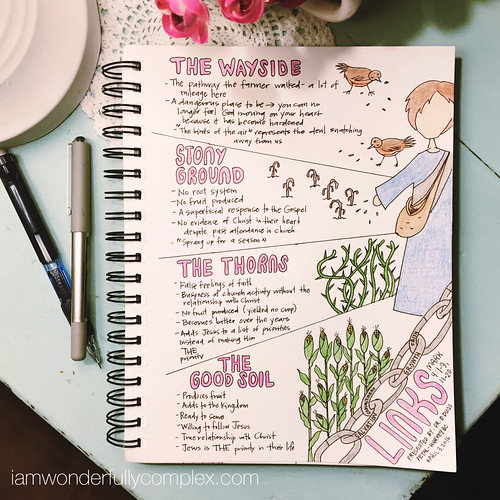 THE WAYSIDE
- The pathway the farmer walked - a lot of
mileage here
- A dangerous place to be → you can no
longer feel God moving on your heart
because it has become hardened
- "The birds of the air" represents the devil snatching
away from us
STONY
GROUND
- No root system
- No fruit produced
- A superficial response to the Gospel
- No evidence of Christ in their heart
despite past attendance in church
- "Sprang up for a season"
THE THORNS
- False feelings of faith
- Busyness of church activity without the
relationship with Christ
- No fruit produced (yielded no crop)
- Becomes bitter over the years
- Adds Jesus to a list of priorities
instead of making Him
THE
priority
THE
GOOD SOIL
- Produces fruit
- Adds to the Kingdom
- Ready to serve
- Willing to follow Jesus
- True relationship with Christ
- Jesus is THE priority in their life
LINKS
MARK
4:1-9,
11-20
PRESENTED BY DR. D. DODDS
APRIL 3, 2016
GROWTH
iamwonderfullycomplex.com